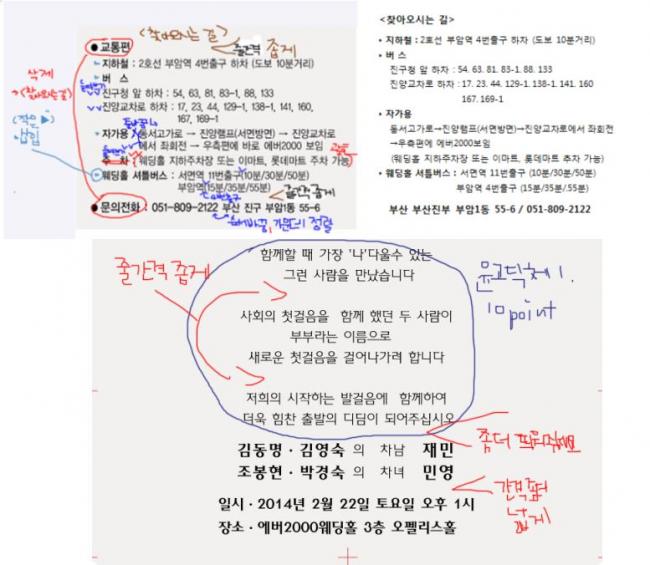 ● 교통편
(찾아오시는 길)
줄간격 좁게
지하철 : 2호선 부암역 4번출구 하차 (도보 10분거리)
버 스
진구청 앞 하차 : 54, 63, 81, 83-1, 88, 133
진양교차로 하차 : 17, 23, 44, 129-1, 138-1, 141, 160,
167, 169-1
자가용 동서고가로 → 진양램프(서면방면) → 진양교차로
에서 좌회전 → 우측편에 바로 에버2000 보임
주 차 웨딩홀 지하주차장 또는 이마트, 롯데마트 주차 가능
웨딩홀 셔틀버스 : 서면역 11번출구(10분/30분/50분)
부암역(15분/35분/55분)
4번출구
줄간격 좁게
● 문의전화 : 051-809-2122 부산 진구 부암1동 55-6
가운데 정렬
삭제
(찾아오시는 길)
(작은 ▶)
삽입
<찾아오시는 길>
• 지하철: 2호선 부암역 4번출구 하차 (도보 10분거리)
• 버 스
진구청 앞 하차 : 54. 63. 81. 83-1. 88. 133
진양교차로 하차 : 17. 23. 44. 129-1. 138-1. 141. 160
167. 169-1
• 자가용
동서고가로→진양램프(서면방면)→진양교차로에서 좌회전
→우측편에 에버2000보임
(웨딩홀 지하주차장 또는 이마트, 롯데마트 주차 가능)
• 웨딩홀 셔틀버스 : 서면역 11번출구 (10분/30분/50분)
부암역 4번출구 (15분/35분/.55분)
부산 부산진부 부암1동 55-6 / 051-809-2122
함께할 때 가장 '나'다울수 있는
그런 사람을 만났습니다
사회의 첫걸음을 함께 했던 두 사람이
부부라는 이름으로
새로운 첫걸음을 걸어나가려 합니다
저희의 시작하는 발걸음에 함께하여
더욱 힘찬 출발의 디딤이 되어주십시오
줄간격 좁게
윤고딕체1.
10point
김동명 · 김영숙 의 차남 재민
조봉현 · 박경숙 의 차녀 민영
좀더
간격 좀더
넓게
일시 · 2014년 2월 22일 토요일 오후 1시
장소 · 에버2000웨딩홀 3층 오펠리스홀